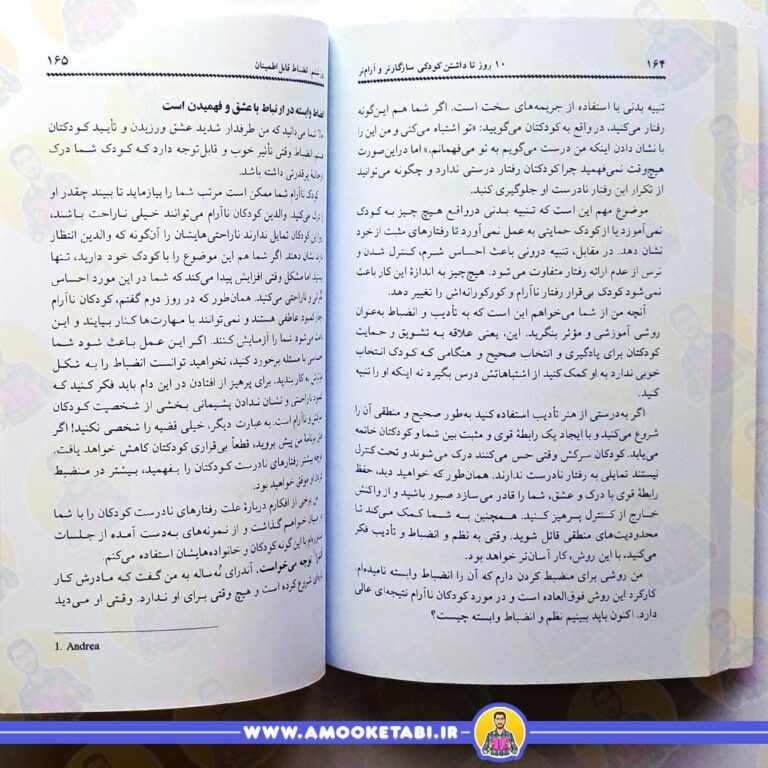 ۱۶۴
۱۰ روز تا داشتن کودکی سازگارتر و آرام‌تر
تنبیه بدنی یا استفاده از جریمه‌های سخت است. اگر شما هم این‌گونه
رفتار می‌کنید، در واقع به کودکتان می‌گویید: «تو اشتباه می‌کنی و من این را
با نشان دادن اینکه من درست می‌گویم به تو می‌فهمانم.» اما دراین‌صورت
هیچ‌وقت نمی‌فهمید چرا کودکتان رفتار درستی ندارد و چگونه می‌توانید
از تکرار این رفتار نادرست او جلوگیری کنید.
موضوع مهم این است که تنبیه بدنی درواقع هیچ چیز به کودک
نمی‌آموزد یا از کودک حمایتی به عمل نمی‌آورد تا رفتارهای مثبت از خود
نشان دهد. در مقابل، تنبیه درونی باعث احساس شرم، کنترل شدن و
ترس از عدم ارائه رفتار متفاوت می‌شود. هیچ‌چیز به اندازهٔ این کار باعث
نمی‌شود کودک بی‌قرار رفتار ناآرام و کورکورانه‌اش را تغییر دهد.
آنچه من از شما می‌خواهم این است که به تأدیب و انضباط به‌عنوان
روشی آموزشی و مؤثر بنگرید. این، یعنی علاقه به تشویق و حمایت
کودکتان برای یادگیری و انتخاب صحیح و هنگامی که کودک انتخاب
خوبی ندارد به او کمک کنید از اشتباهاتش درس بگیرد نه اینکه او را تنبیه
کنید.
اگر به‌درستی از هنر تأدیب استفاده کنید به‌طور صحیح و منطقی آن را
شروع می‌کنید و با ایجاد یک رابطهٔ قوی و مثبت بین شما و کودکتان خاتمه
می‌یابد. کودکان سرکش وقتی حس می‌کنند درک می‌شوند و تحت کنترل
نیستند تمایلی به رفتار نادرست ندارند. همان‌طور که خواهید دید، حفظ
رابطهٔ قوی با درک و عشق، شما را قادر می سازد صبور باشید و از واکنش
خارج از کنترل پرهیز کنید. همچنین به شما کمک می‌کند تا
محدودیت‌های منطقی قائل شوید. وقتی به نظم و انضباط و تأدیب فکر
می‌کنید، با این روش، کار آسان‌تر خواهد بود.
من روشی برای منضبط کردن دارم که آن را انضباط وابسته نامیده‌ام.
کارکرد این روش فوق‌العاده است و در مورد کودکان ناآرام نتیجه‌ای عالی
دارد. اکنون باید ببینیم نظم و انضباط وابسته چیست؟
ششم. انضباط قابل اطمینان
۱۶۵
انضباط وابسته در ارتباط با عشق و فهمیدن است
حالا شما می‌دانید که من طرفدار شدید عشق ورزیدن و تأیید کودکتان
هستم. انضباط وقتی تأثیر خوب و قابل‌توجه دارد که کودک شما درک
پرقدرتی داشته باشد.
کودک ناآرام شما ممکن است مرتب شما را بیازماید تا ببیند چقدر او
را درک می‌کنید. والدین کودکان ناآرام می‌توانند خیلی ناراحت باشند،
زیرا این کودکان تمایل ندارند ناراحتی‌هایشان را آن‌گونه که والدین انتظار
دارند نشان دهند. اگر شما هم این موضوع را با کودک خود دارید، تنها
نیستید. اما مشکل وقتی افزایش پیدا می‌کند که شما در این مورد احساس
و ناراحتی می‌کنید. همان‌طور که در روز دوم گفتم، کودکان ناآرام
عاطفی هستند و نمی‌توانند با مهارت‌ها کنار بیایند و این
باعث می‌شود شما را آزمایش کنند. اگر این عمل باعث شود شما
با مسئله برخورد کنید، نخواهید توانست انضباط را به شکل
به کار بندید. برای پرهیز از افتادن در این دام باید فکر کنید که
ناراحتی و نشان ندادن پشیمانی بخشی از شخصیت کودکان
ناآرام است. به عبارت دیگر، خیلی قضیه را شخصی نکنید! اگر
برنامهٔ من پیش بروید، قطعاً بی‌قراری کودکتان کاهش خواهد یافت.
بیشتر رفتارهای نادرست کودکتان را بفهمید، بیشتر در منضبط
او موفق خواهید بود.
من برخی از افکارم دربارهٔ علت رفتارهای نادرست کودکان را با شما
در میان خواهم گذاشت و از نمونه‌های به‌دست آمده از جلسات
با این گونه کودکان و خانواده‌هایشان استفاده می‌کنم.
توجه می‌خواست. آندرای نُه‌ساله به من گفت که مادرش کار
شروع کرده است و هیچ وقتی برای او ندارد. وقتی او می‌دید
1. Andrea
WWW.AMOOKETABI.IR